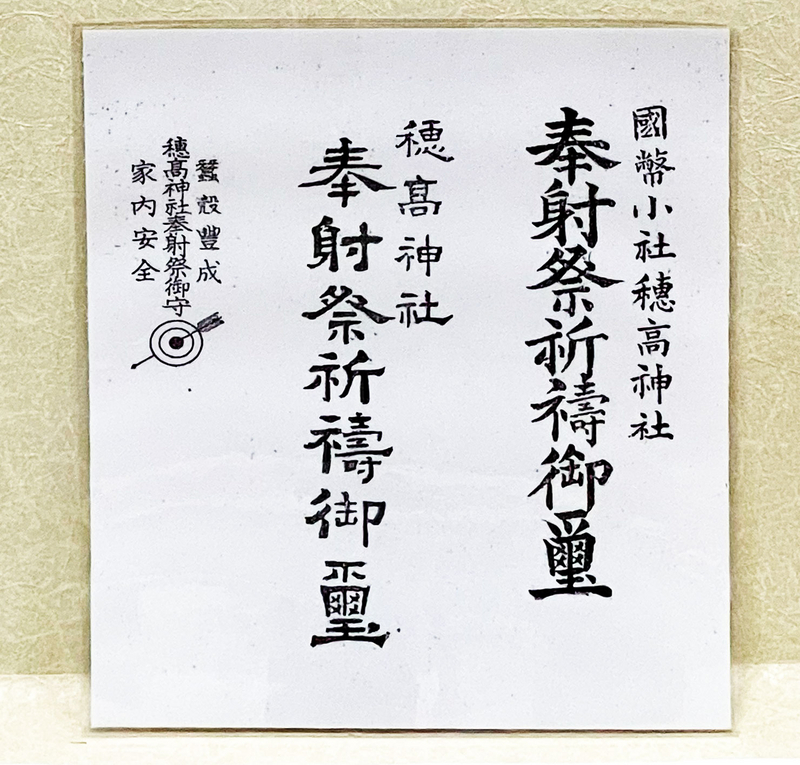 國幣小社穗高神社
奉射祭祈禱御璽
穂髙神社
奉射祭祈禱御璽
蚕穀豐成
穗髙神社奉射祭御守
家内安全